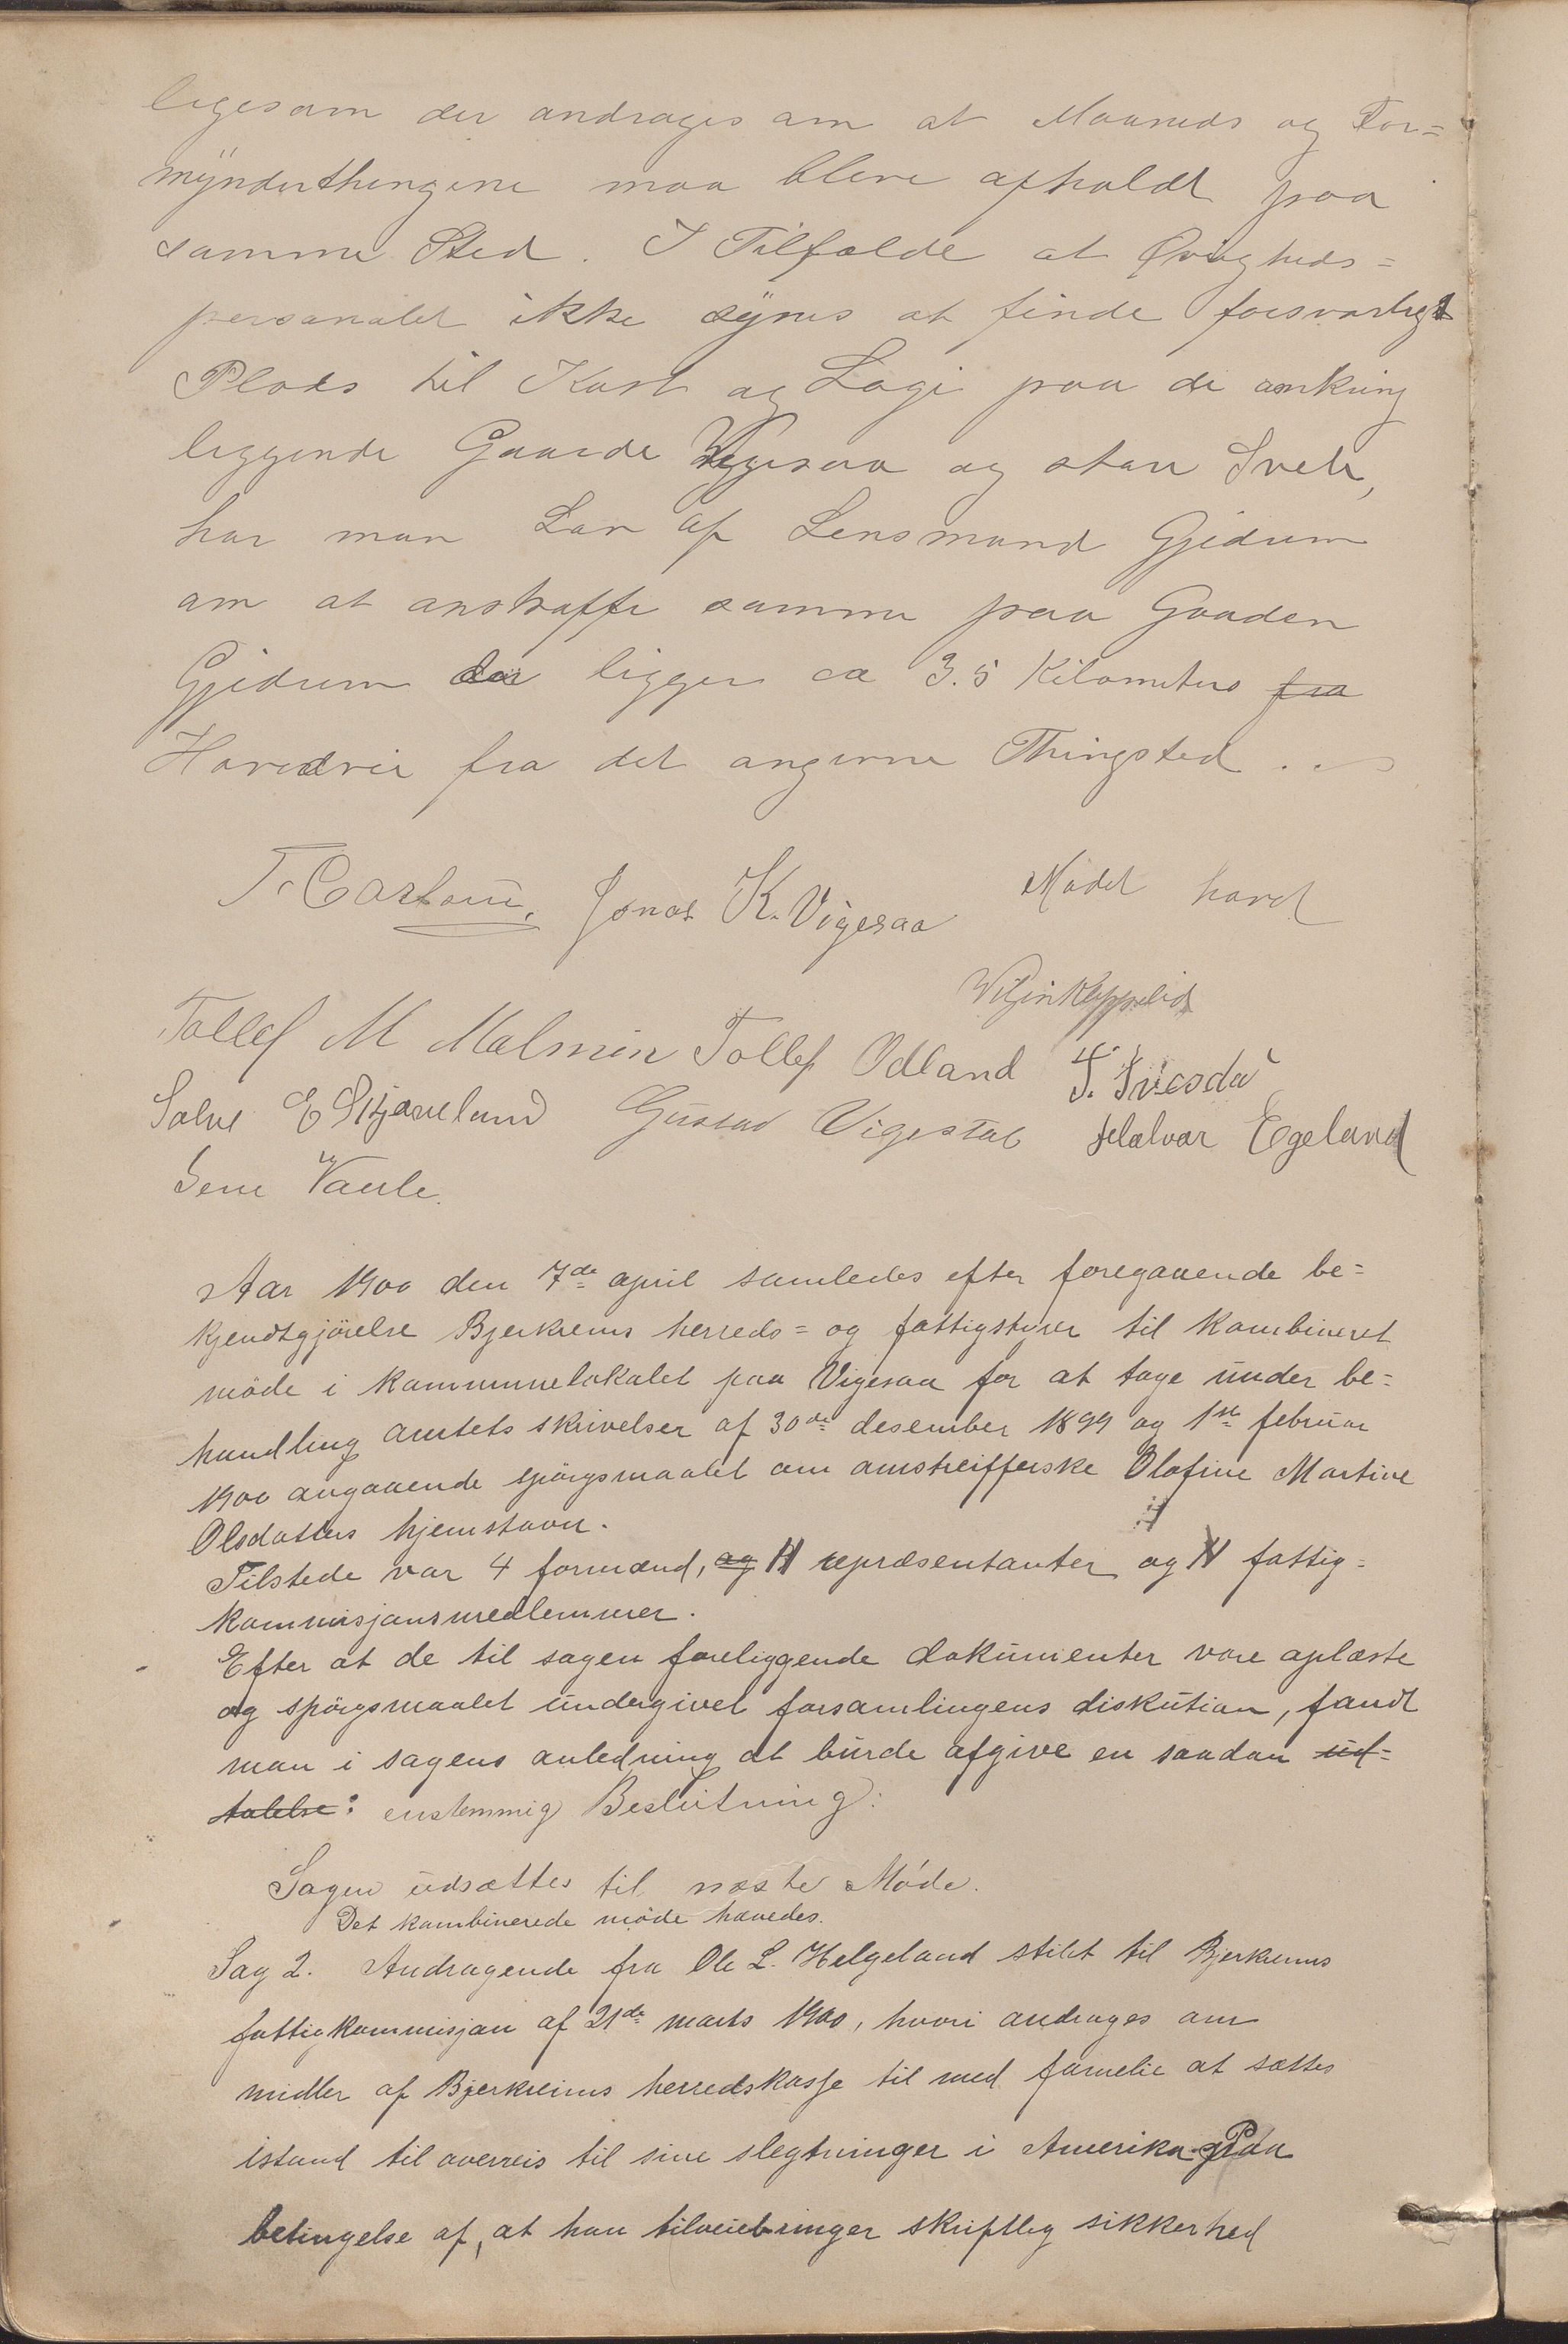 ligesom der andrages om at Maaneds og For=
mynderthingene maa blive afholdt paa
samme Sted. I Tilfælde at Øvrigheds=
personalet ikke synes at finde forsvarligt
Plads til Kost og Logi paa de omkring
liggende Gaarde Vigesaa og store Svele,
har man Lov af Lensmand Gjedrem
om at anskaffe samme paa Gaaden
Gjedrem der ligger ca 3.5 Kilometers fra
Hovedvei fra det angivne Thingsted.
Jonas K. Vigesaa Mødet hævet
Tollef M Malmin Tollef Odland
Salve E Stjæveland Gustav Vigestad Halvar Egeland
Aar 1900 den 7de april samledes efter foregaaende be=
kjendtgjørelse Bjerkreims herreds= og fattigstyrer til kombineret
møde i kommunelokalet paa Vigesaa for at tage under be=
handling amtets skrivelser af 30de desember 1899 og 1ste februar
1900 angaaende spørgsmaalet om omstreifferske Olafine Martine
Olsdatters hjemstavn.
Tilstede var 4 formænd, og 11 repræsentanter og fattig=
kommisjonsmedlemmer.
Efter at de til sagen foreliggende dokumenter vare oplæste
og spørgsmaalet undergivet forsamlingens diskution, fandt
man i sagens anledning at burde afgive en saadan ud=
talelse: enstemmig Beslutning:
Sagen udsættes til næste Møde.
Det kombinerede møde hævedes.
Sag 2. Andragende fra Ole L. Helgeland stilet til Bjerkreims
fattigkommisjon af 21de marts 1900, hvori andrages om
midler af Bjerkreims herredskasse til med familie at sættes
istand til overreis til sine slegtninger i Amerika. Paa
betingelse af, at han tilveiebringer skriftlig sikkerhed